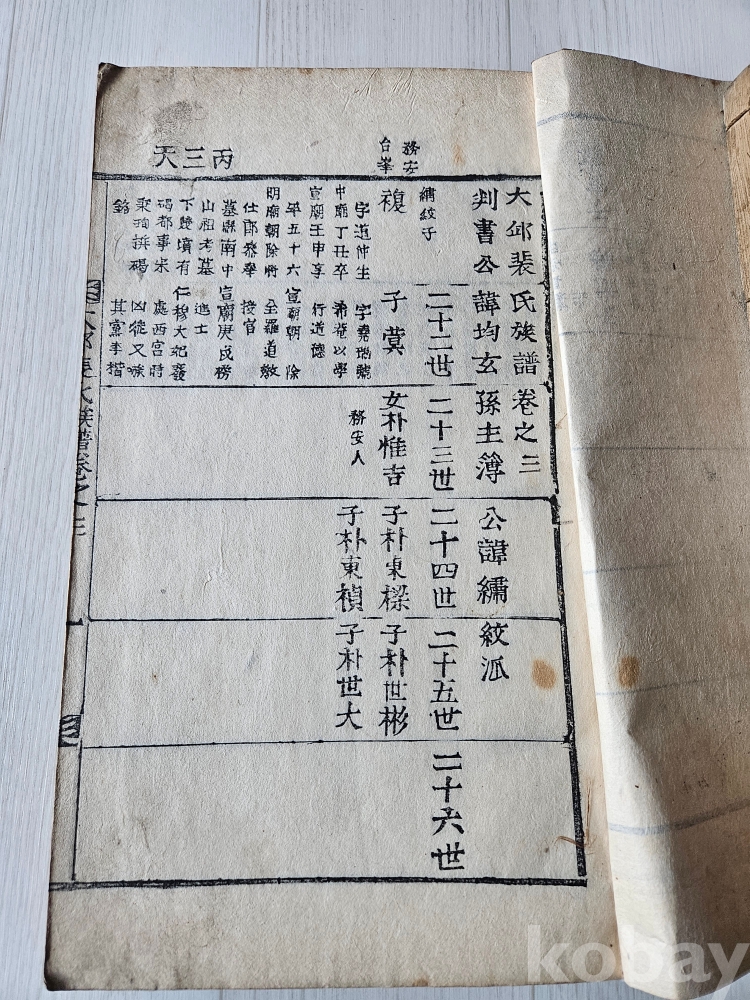 務安
台峯
丙三天
大邱裴氏族譜卷之三
判書公諱均玄孫主簿公諱繡紋派
二十二世
二十三世
二十四世
二十五世
二十六世
繡紋子
複
字道仲生
中廟丁丑卒
宣廟壬申享
年五十六
明廟朝除將
仕郎參奉
墓縣南中
山祖考墓
下雙墳有
碣都事宋
秉珣撰碣
銘
子蓂
字堯瑞號
希菴以學
行道德
宣廟朝除
全羅道教
授官
宣廟庚戌榜
進士
仁穆大妃
處西宮時
凶徒又嗾
其黨李楷
女朴惟吉
務安人
子朴東樑
子朴東禎
子朴世彬
子朴世大
大邱裴氏族譜卷之三
kobay